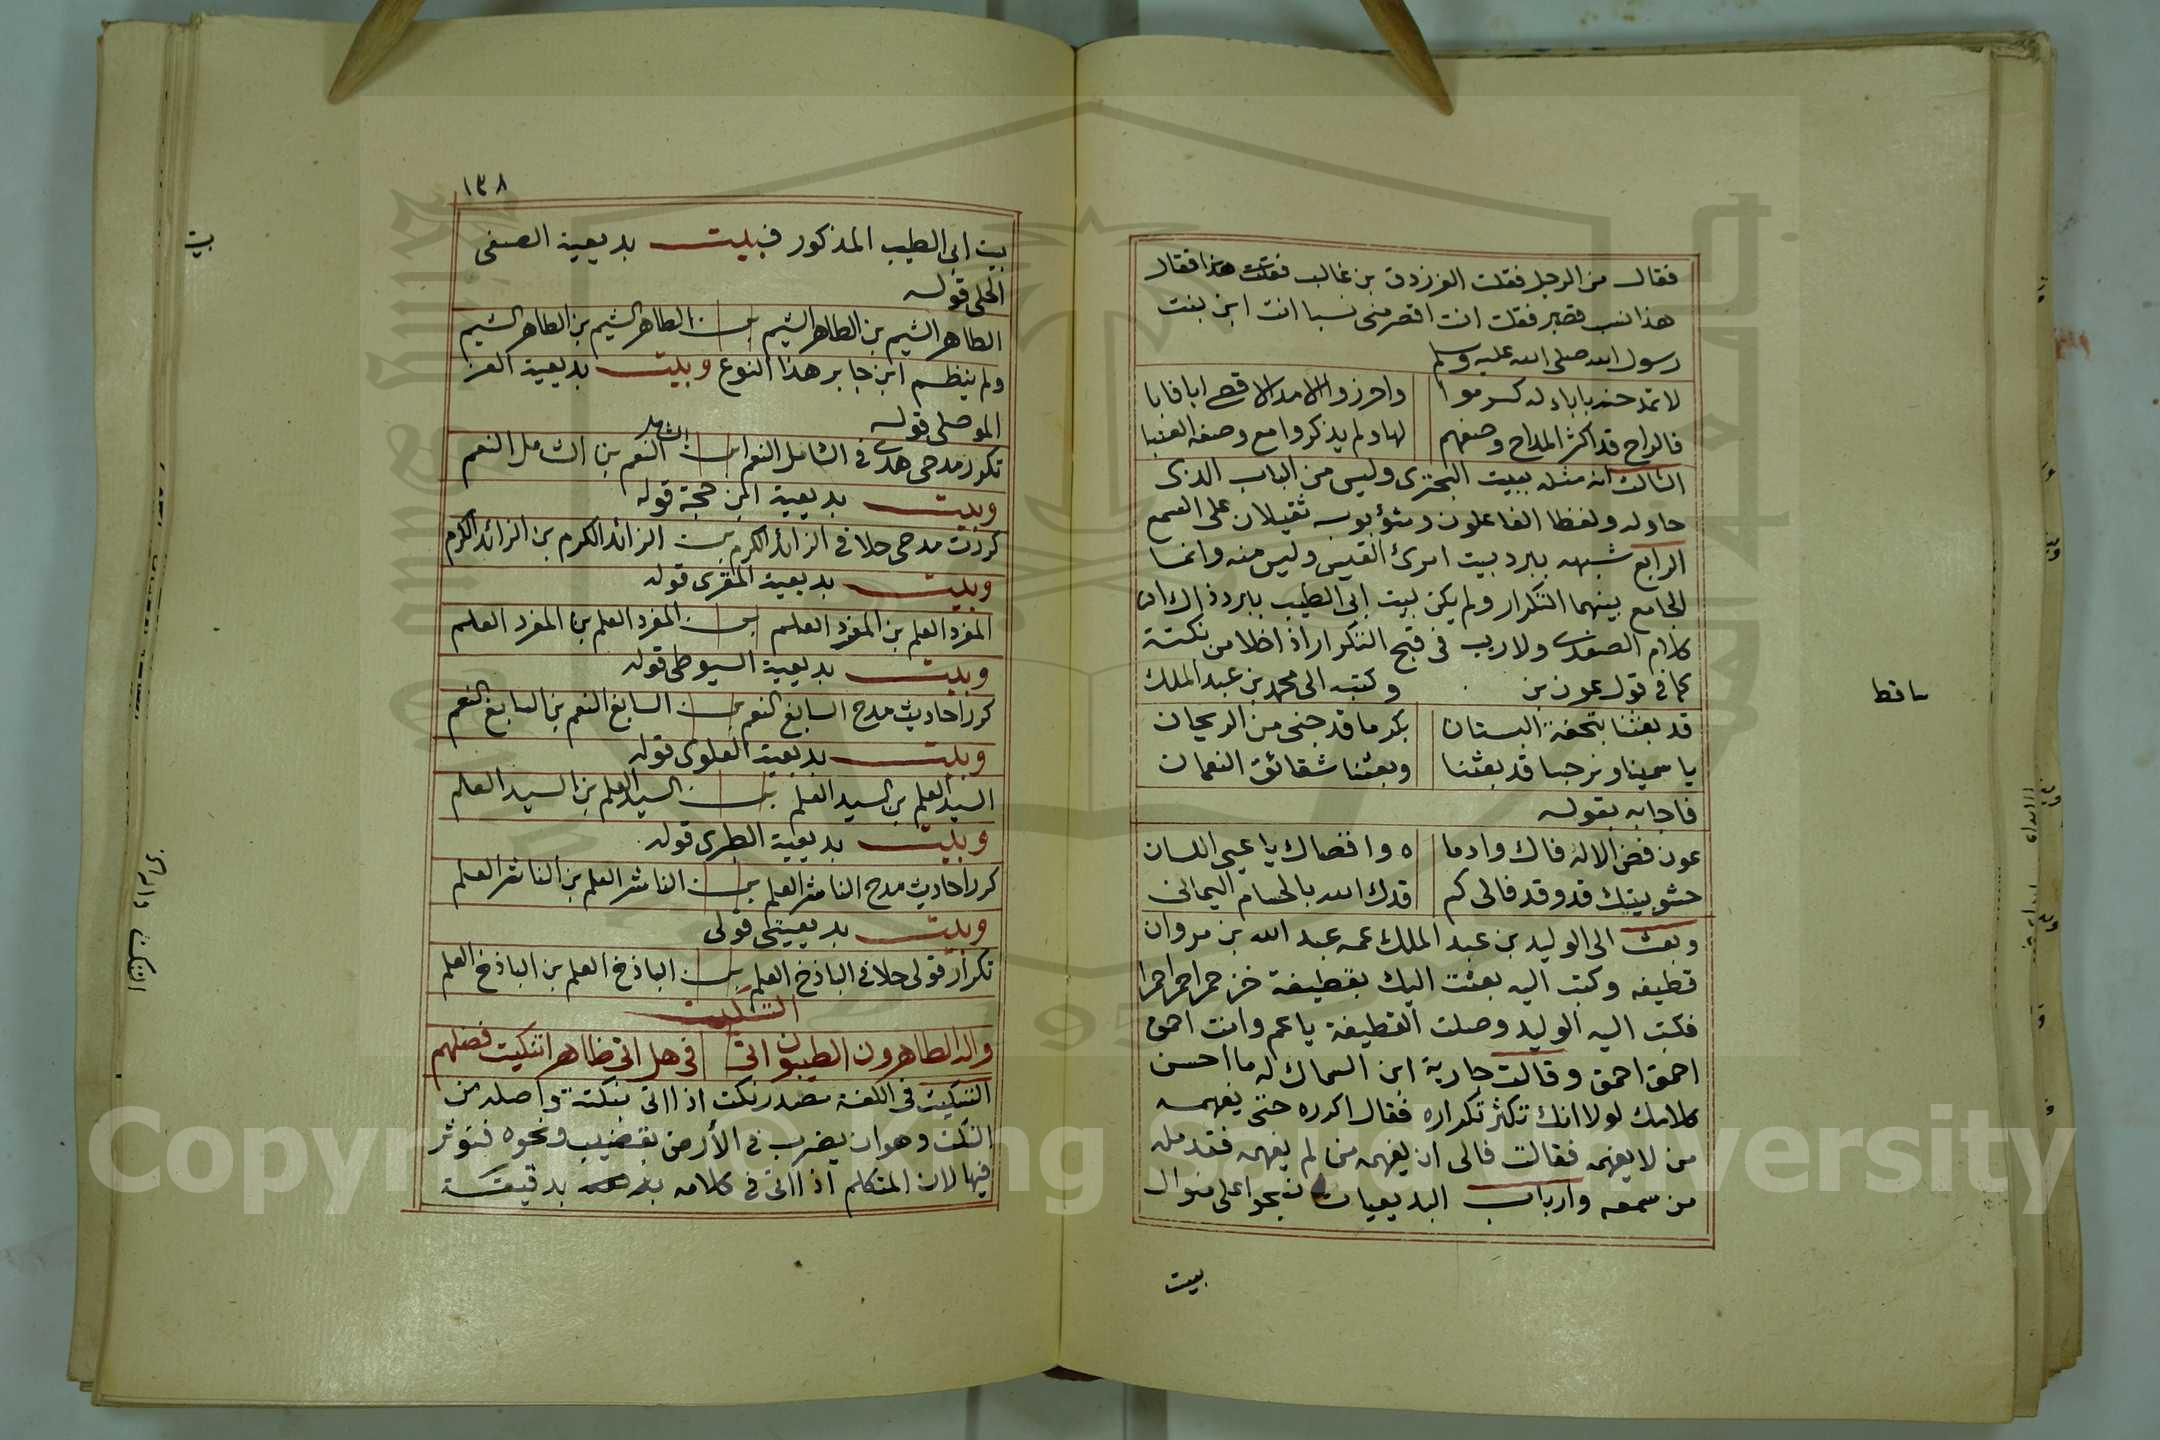 فقال من الرجل فقلت الفرزدق بن غالب فقلت هذا فقال
هذا نسب قصير فقلت انت اقصر منى نسبا انت ابن بنت
رسول الله صلى الله عليه وسلم
لا تمدحنه باباء له كرموا واحرزوا الامد الاقصى ابا فابا
فالراح قد اكثر المداح وصفهم لها ولم يذكروا مع وصفه العنبا
الثالث انه مثله ببيت البحترى وليس من الباب الذى
حاوله ولفظا الفاعلون ونثوبوسه ثقيلان على السمع
الرابع شبهه ببرد بيت امرئ القيس وليس منه وانما
الجامع بينهما التكرار ولم يكن بيت ابى الطيب ببرد ذاك ان
كلام الصفدى ولا ريب فى قبح التكرار اذا خلا من نكتة
كما فى قول عون بن وكتبه الى محمد بن عبد الملك
ساقط
قد بعثنا بتحفة البستان بكر ما قد جنى من الريحان
ياسمينا ونرجسا قد بعثنا وبعثنا شقائق النعمان
فاجابه بقوله
عون فض الاله فاك وادما ه واقصاك يا عيى اللسان
حشو بيتيك قد وقد فالى كم قدك الله بالحسام اليمانى
وبعث الى الوليد بن عبد الملك عمه عبد الله بن مروان
قطيفه وكتب اليه بعثت اليك بقطيفة خز حمرا حمرا حمرا
فكتب اليه الوليد وصلت القطيفة يا عم وانت احمق
احمق احمق وقالت جارية ابن السماك له ما احسن
كلامك لولا انك تكثر تكراره فقال اكرره حتى يفهمه
من لا يفهمه فقالت فالى ان يفهمه من لم يفهمه فقد مله
من سمعه وارباب البديعيات نحوا على منوال
بيت
١٣٨
بيت ابى الطيب المذكور فبيت بديعية الصفى
الحلى قوله
الطاهر الشيم بن الطاهر الشيم بن الطاهر الشيم بن الطاهر الشيم
ولم ينظم ابن جابر هذا النوع وبيت بديعية العز
الموصلى قوله
تكرر مدحى هدى فى الشامل النعم ابن الشامل النعم بن الشامل النعم
وبيت بديعية ابن حجة قوله
كررت مدحى حلا فى الزائد الكرم بن الزائد الكرم بن الزائد الكرم
وبيت بديعية المقرى قوله
المفرد العلم بن المفرد العلم بن المفرد العلم بن المفرد العلم
وبيت بديعية السيوطى قوله
كرر احاديث مدح السابغ النعم بن السابغ النعم بن السابغ النعم
وبيت بديعية العلوى قوله
السيد العلم بن السيد العلم بن السيد العلم بن السيد العلم
وبيت بديعية الطبرى قوله
كرر احاديث مدح الناشر العلم بن الناشر العلم بن الناشر العلم
وبيت بديعيتى قولى
تكرار قولى حلا فى الباذخ العلم بن الباذخ العلم بن الباذخ العلم
التنكيت
واله الطاهرون الطيبون اتى فى هل اتى ظاهرا تنكيت فضلهم
التنكيت فى اللغة مصدر نكت اذا اتى بنكتة واصله من
النكت وهو ان يضرب فى الأرض بقضيب ونحوه فيؤثر
فيها لان المتكلم اذا اتى فى كلامه بدقيقة
Copyright © King Saud University